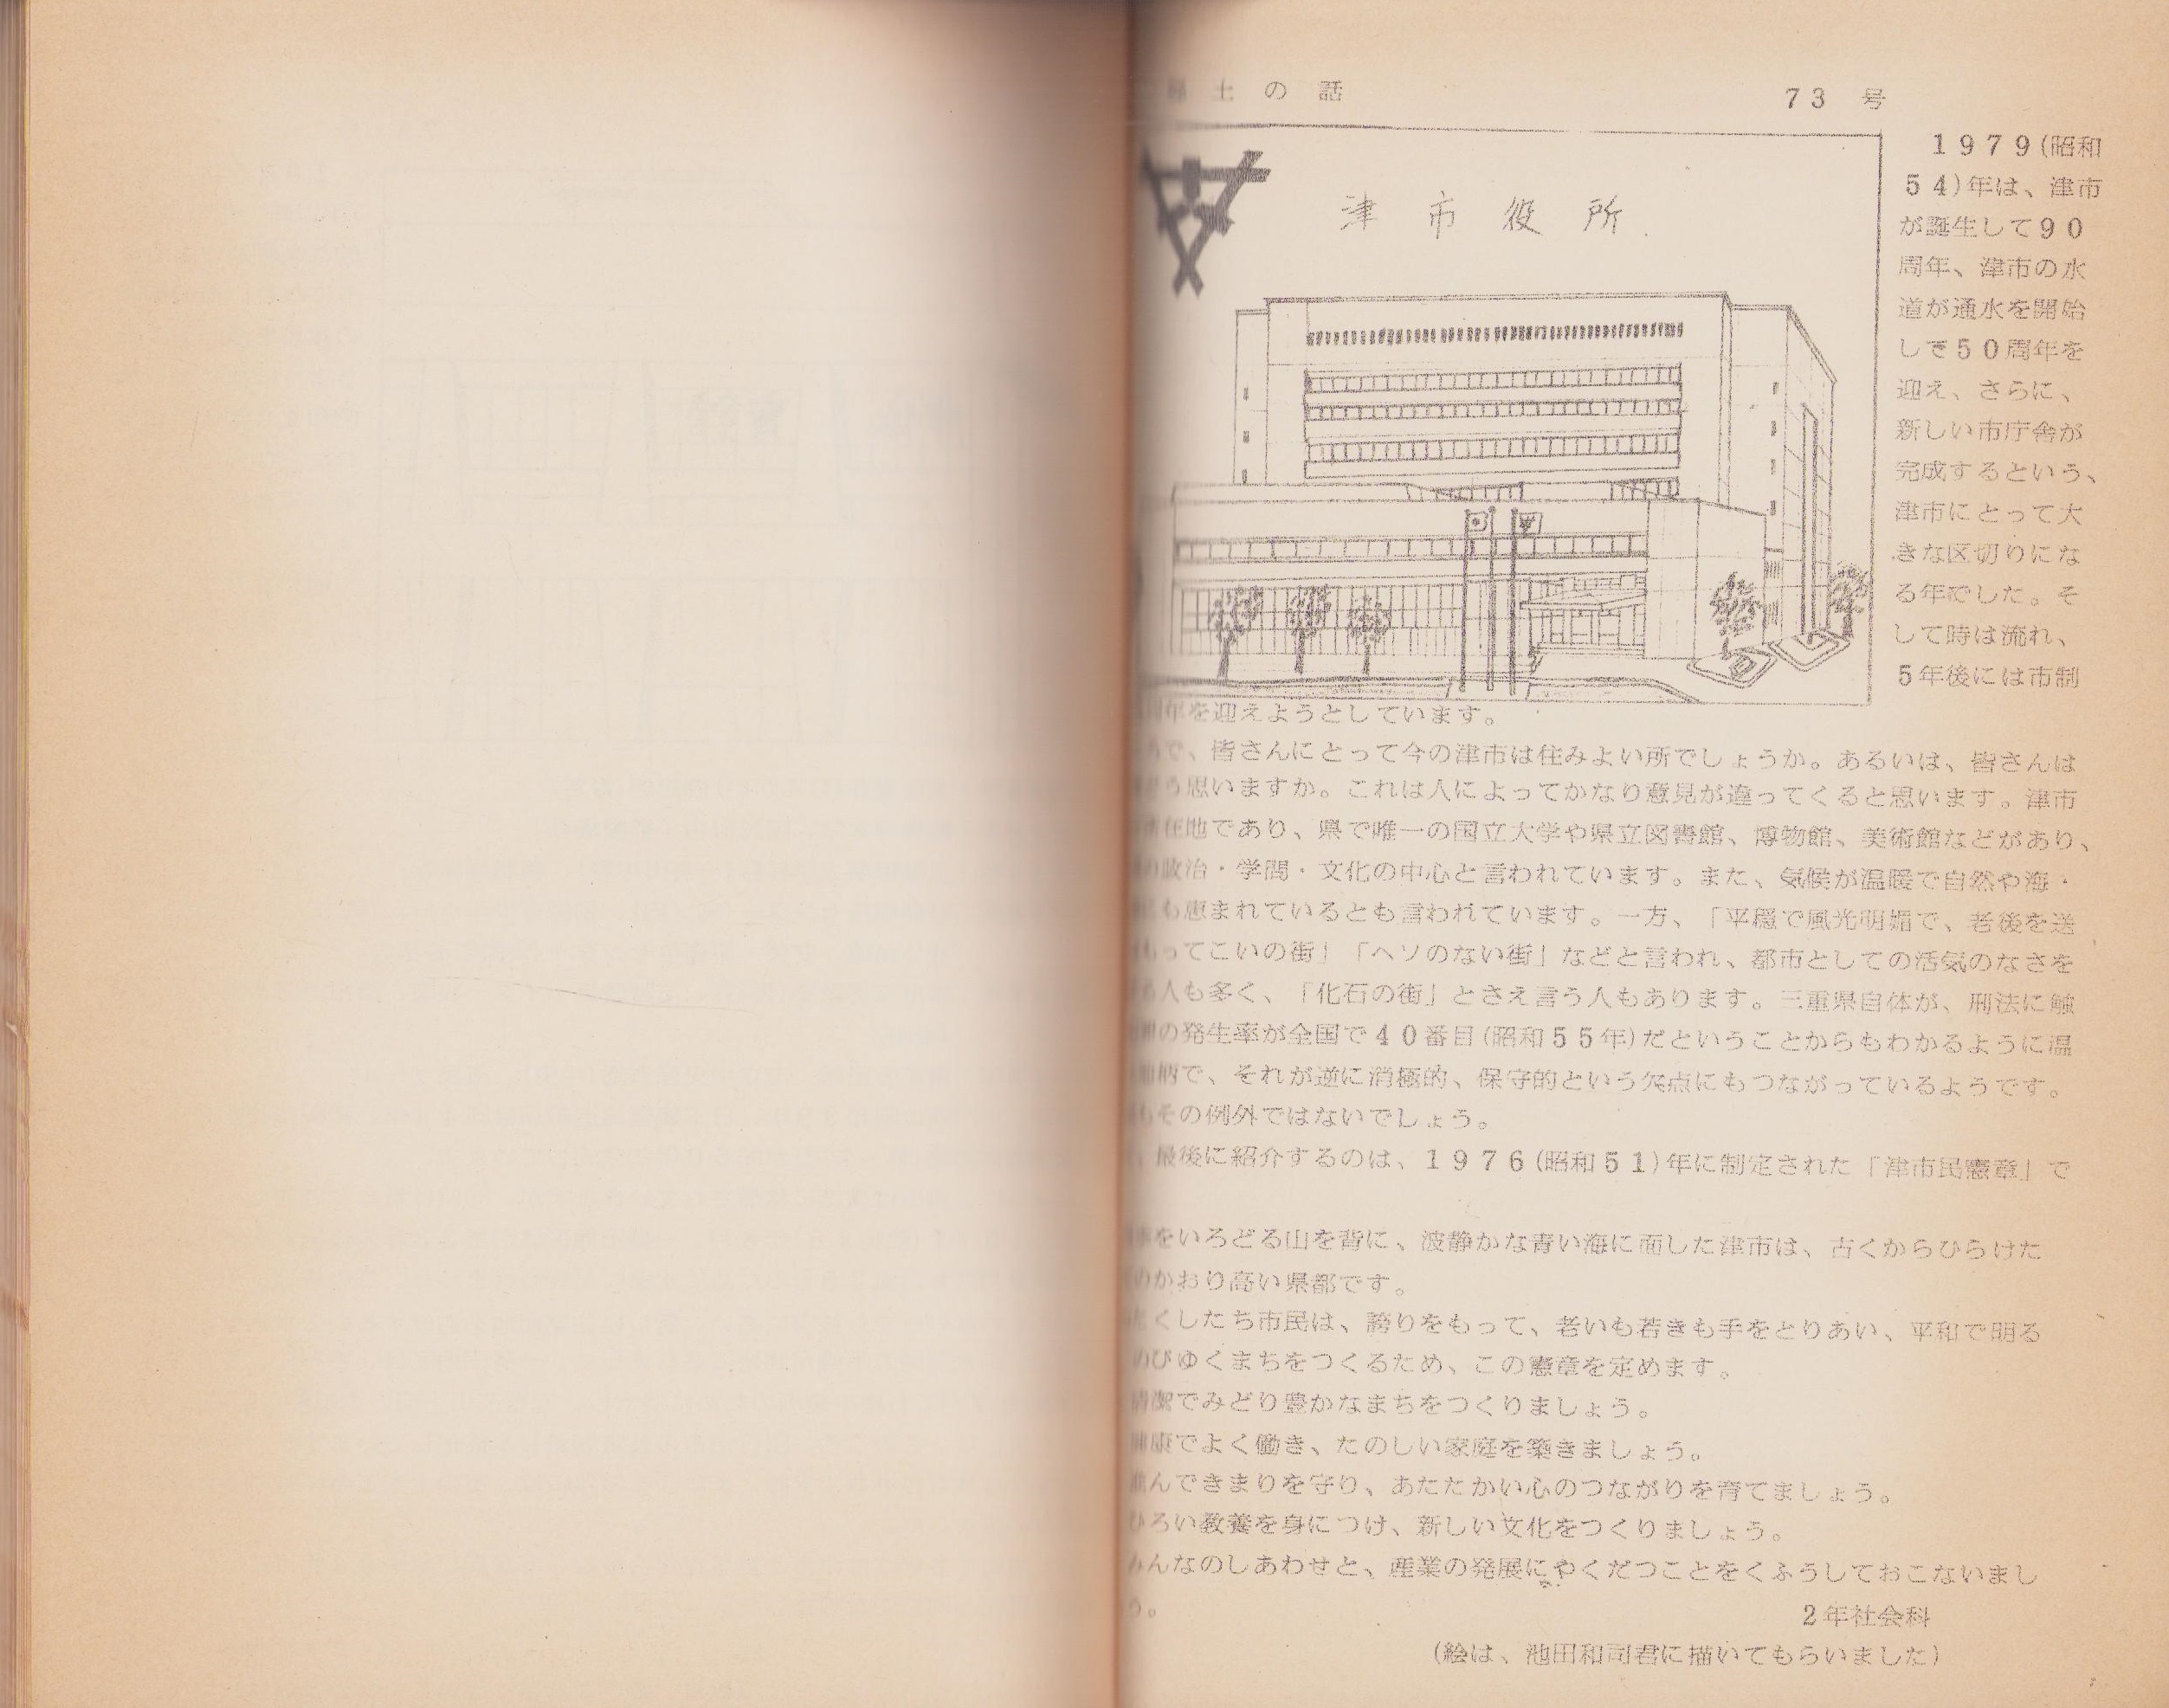 土の話
73 号
津市役所
1979(昭和
54)年は、津市
が誕生して90
周年、津市の水
道が通水を開始
して50周年を
迎え、さらに、
新しい市庁舎が
完成するという、
津市にとって大
きな区切りにな
る年でした。そ
して時は流れ、
5年後には市制
年を迎えようとしています。
で、皆さんにとって今の津市は住みよい所でしょうか。あるいは、皆さんは
う思いますか。これは人によってかなり意見が違ってくると思います。津市
所在地であり、県で唯一の国立大学や県立図書館、博物館、美術館などがあり、
の政治・学問・文化の中心と言われています。また、気候が温暖で自然や海・
も恵まれているとも言われています。一方、「平穏で風光明媚で、老後を送
もってこいの街」「ヘソのない街」などと言われ、都市としての活気のなさを
る人も多く、「化石の街」とさえ言う人もあります。三重県自体が、刑法に触
の発生率が全国で40番目(昭和55年)だということからもわかるように温
柄で、それが逆に消極的、保守的という欠点にもつながっているようです。
もその例外ではないでしょう。
、最後に紹介するのは、1976(昭和51)年に制定された「津市民憲章」で
をいろどる山を背に、波静かな青い海に面した津市は、古くからひらけた
のかおり高い県都です。
くしたち市民は、誇りをもって、老いも若きも手をとりあい、平和で明る
のびゆくまちをつくるため、この憲章を定めます。
清潔でみどり豊かなまちをつくりましょう。
健康でよく働き、たのしい家庭を築きましょう。
進んできまりを守り、あたたかい心のつながりを育てましょう。
ひろい教養を身につけ、新しい文化をつくりましょう。
みんなのしあわせと、産業の発展にやくだつことをくふうしておこないまし
う。
2年社会科
(絵は、池田和司君に描いてもらいました)